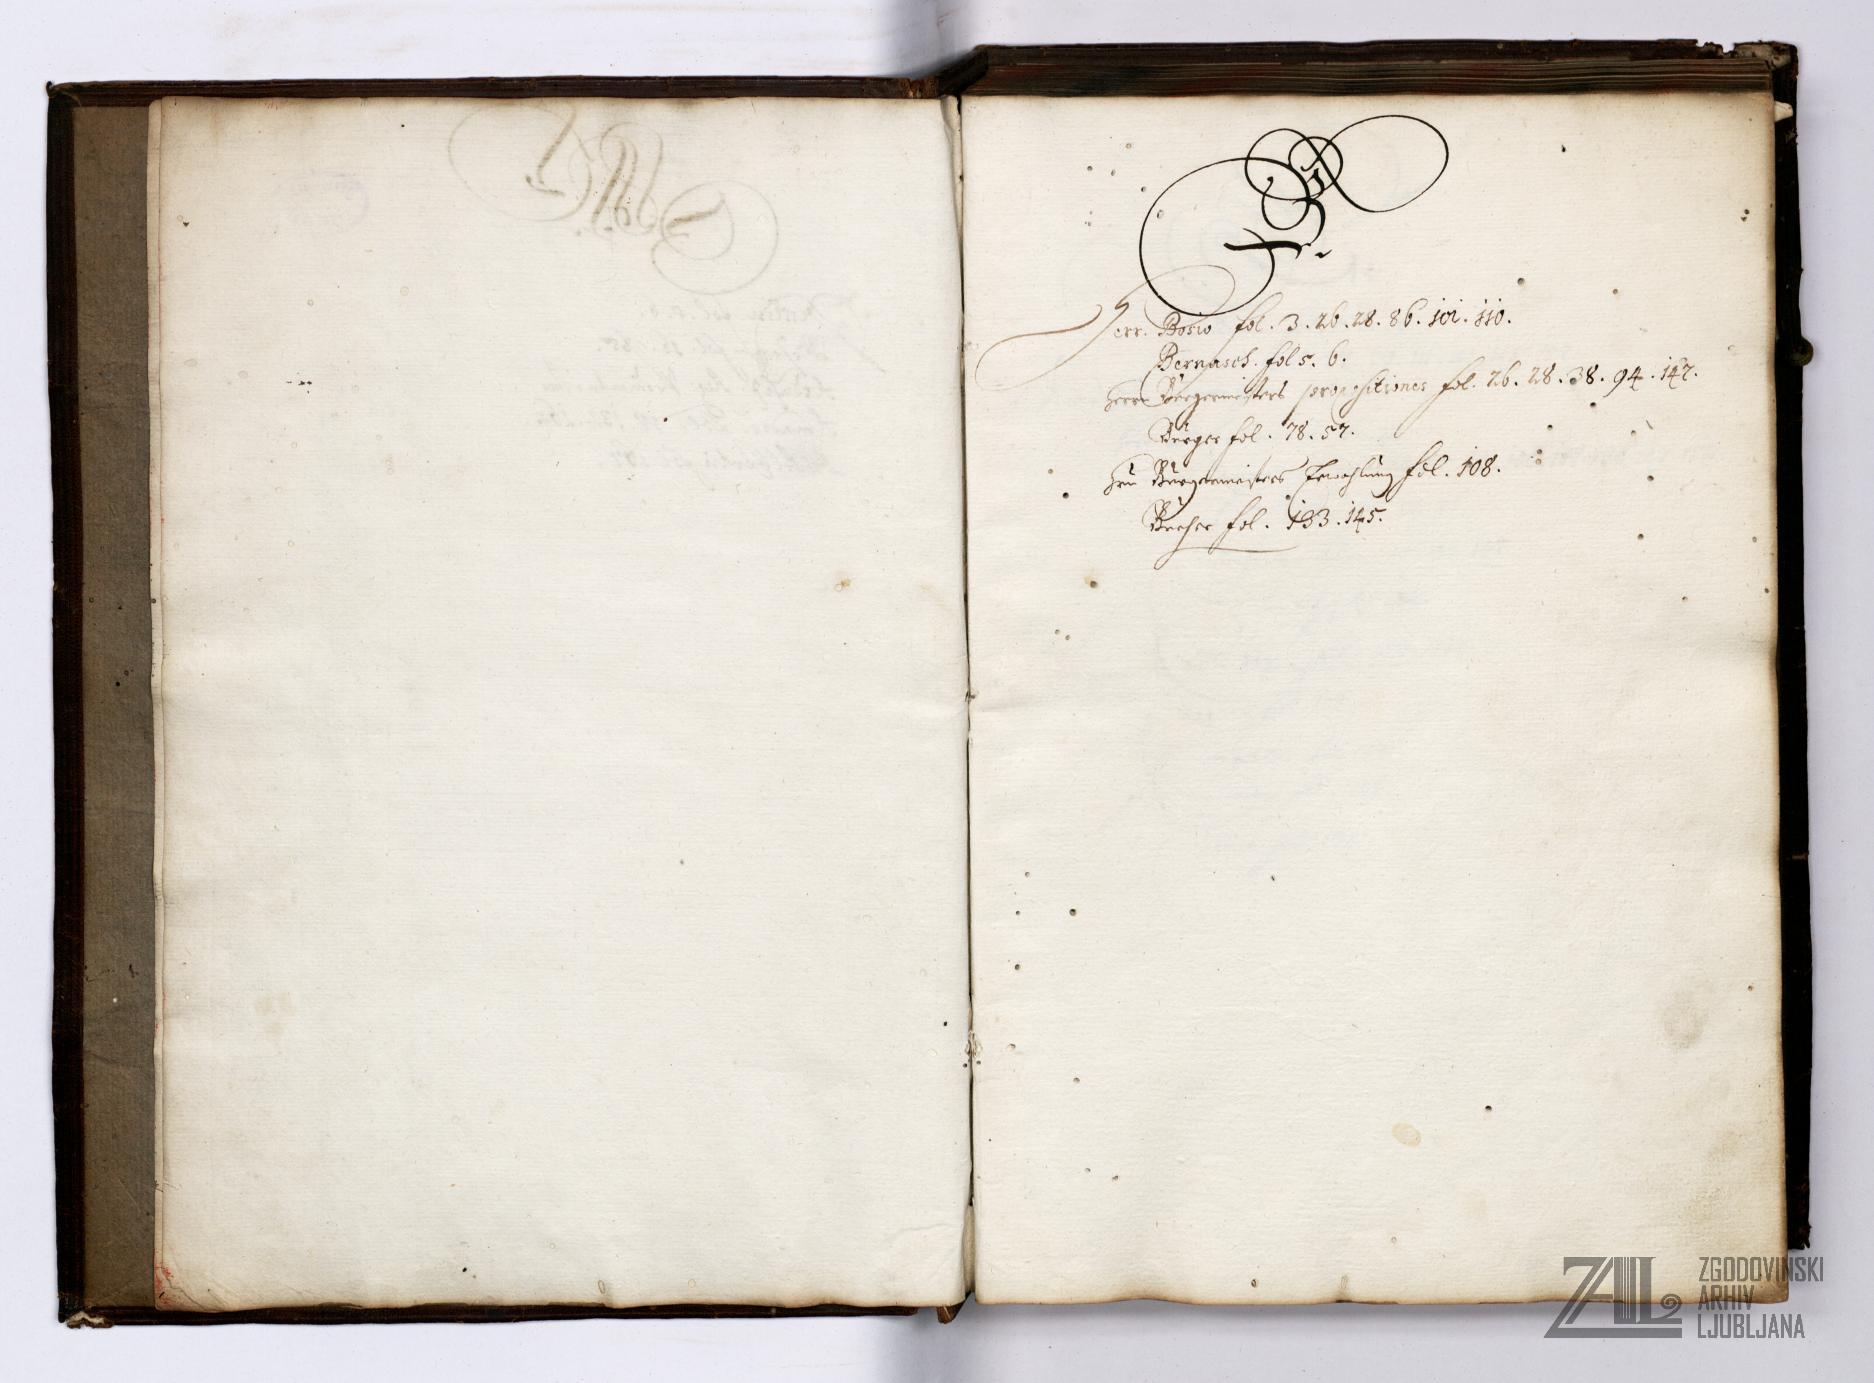 B.
Herr. Bosio fol. 3. 26. 28. 86. 101. 110.
Bernasch. fol 5. 6.
Herrn Bürgermeisters propositiones fol. 26. 28. 38. 94. 147.
Bürger fol. 78. 57.
Herrn Bürgermeisters Erwehlung fol. 108.
Bücher fol. 133. 145.
ZAL ZGODOVINSKI
ARHIV
LJUBLJANA